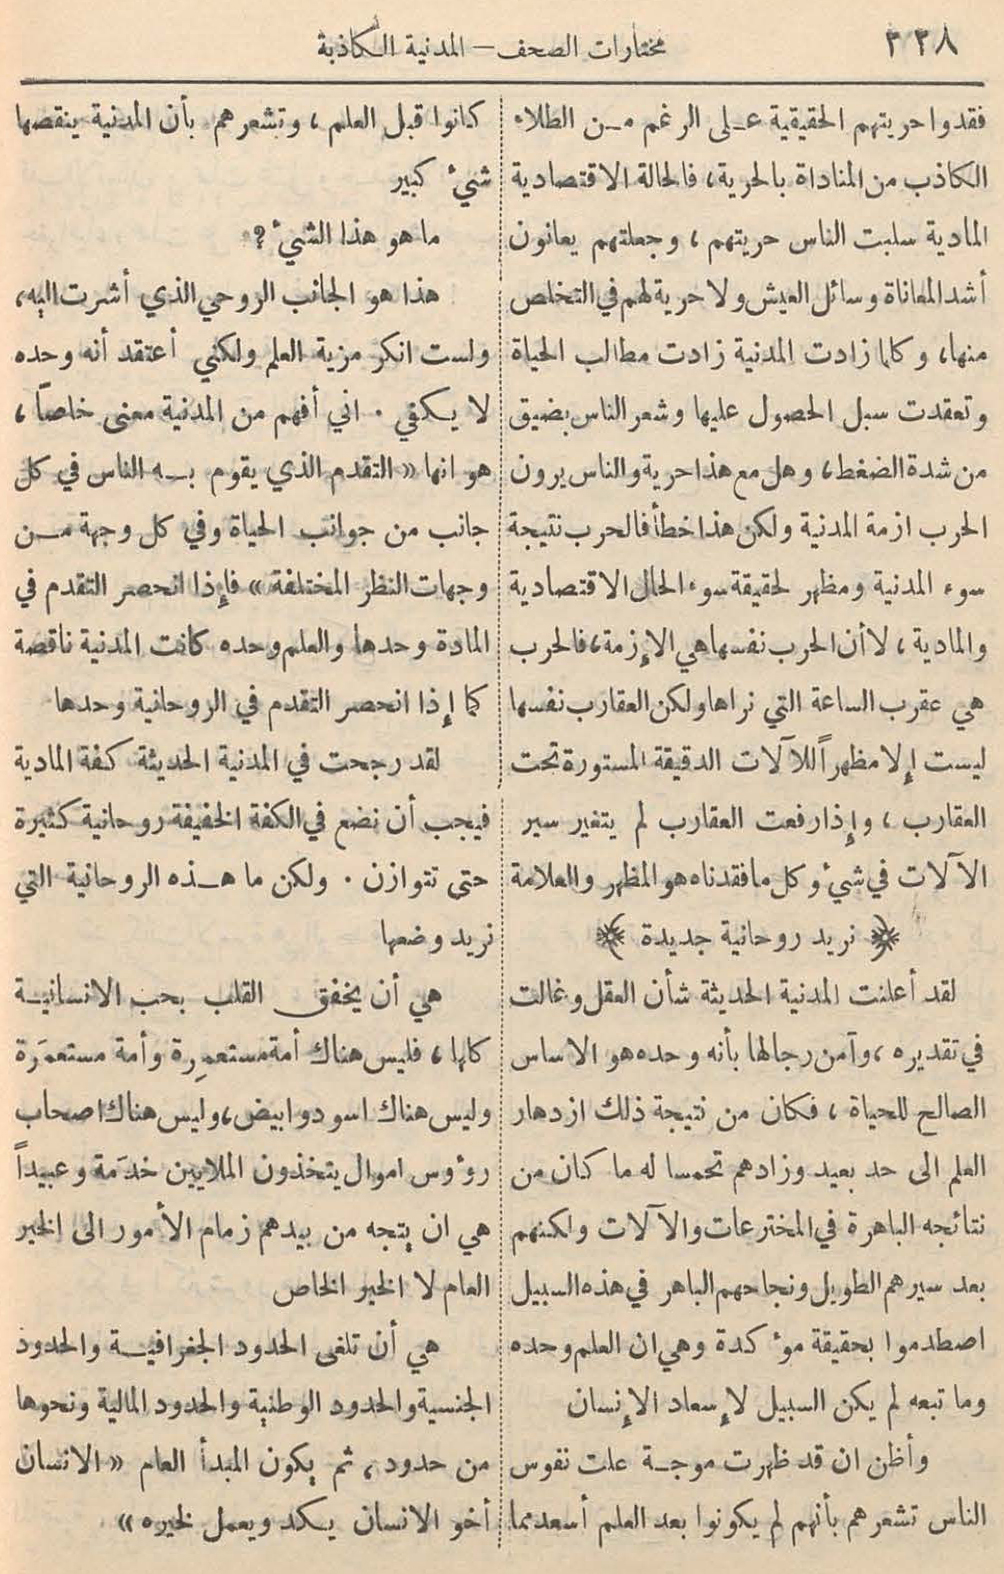 ٣٣٨
مختارات الصحف — المدنية الكاذبة
فقدوا حريتهم الحقيقية على الرغم من الطلاء
الكاذب من المناداة بالحرية، فالحالة الاقتصادية
المادية سلبت الناس حريتهم، وجعلتهم يعانون
أشد المعاناة وسائل العيش ولا حرية لهم في التخلص
منها، وكلما زادت المدنية زادت مطالب الحياة
وتعقدت سبل الحصول عليها وشعر الناس بضيق
من شدة الضغط، وهل مع هذا حرية والناس يرون
الحرب ازمة المدنية ولكن هذا خطأ فالحرب نتيجة
سوء المدنية ومظهر لحقيقة سوء الحال الاقتصادية
والمادية، لا أن الحرب نفسها هي الإزمة، فالحرب
هي عقرب الساعة التي نراها ولكن العقارب نفسها
ليست إلا مظهراً للآلات الدقيقة المستورة تحت
العقارب، وإذا رفعت العقارب لم يتغير سير
الآلات في شيء وكل ما فقدناه هو المظهر والعلامة
﴿ نريد روحانية جديدة ﴾
لقد أعلنت المدنية الحديثة شأن العقل وغالت
في تقديره، وآمن رجالها بأنه وحده هو الاساس
الصالح للحياة، فكان من نتيجة ذلك ازدهار
العلم الى حد بعيد وزادهم تحمسا له ما كان من
نتائجه الباهرة في المخترعات والآلات ولكنهم
بعد سيرهم الطويل ونجاحهم الباهر في هذه السبيل
اصطدموا بحقيقة مؤكدة وهي ان العلم وحده
وما تبعه لم يكن السبيل لإسعاد الإنسان
وأظن ان قد ظهرت موجة علت نفوس
الناس تشعرهم بأنهم لم يكونوا بعد العلم أسعد مما
كانوا قبل العلم، وتشعرهم بأن المدنية ينقصها
شيء كبير
ما هو هذا الشيء؟
هذا هو الجانب الروحي الذي أشرت اليه،
ولست انكر مزية العلم ولكني أعتقد أنه وحده
لا يكفي. اني أفهم من المدنية معنى خاصاً،
هو انها «التقدم الذي يقوم به الناس في كل
جانب من جوانب الحياة وفي كل وجهة من
وجهات النظر المختلفة» فإذا انحصر التقدم في
المادة وحدها والعلم وحده كانت المدنية ناقصة
كما إذا انحصر التقدم في الروحانية وحدها
لقد رجحت في المدنية الحديثة كفة المادية
فيجب أن نضع في الكفة الخفيفة روحانية كثيرة
حتى تتوازن. ولكن ما هذه الروحانية التي
نريد وضعها
هي أن يخفق القلب بحب الانسانية
كلها، فليس هناك أمة مستعمِرة وأمة مستعمَرة
وليس هناك اسود وابيض، وليس هناك اصحاب
رؤوس اموال يتخذون الملايين خدَمة وعبيداً
هي ان يتجه من بيدهم زمام الأمور الى الخير
العام لا الخير الخاص
هي أن تلغى الحدود الجغرافية والحدود
الجنسية والحدود الوطنية والحدود المالية ونحوها
من حدود، ثم يكون المبدأ العام «الانسان
أخو الانسان يكد ويعمل لخيره»